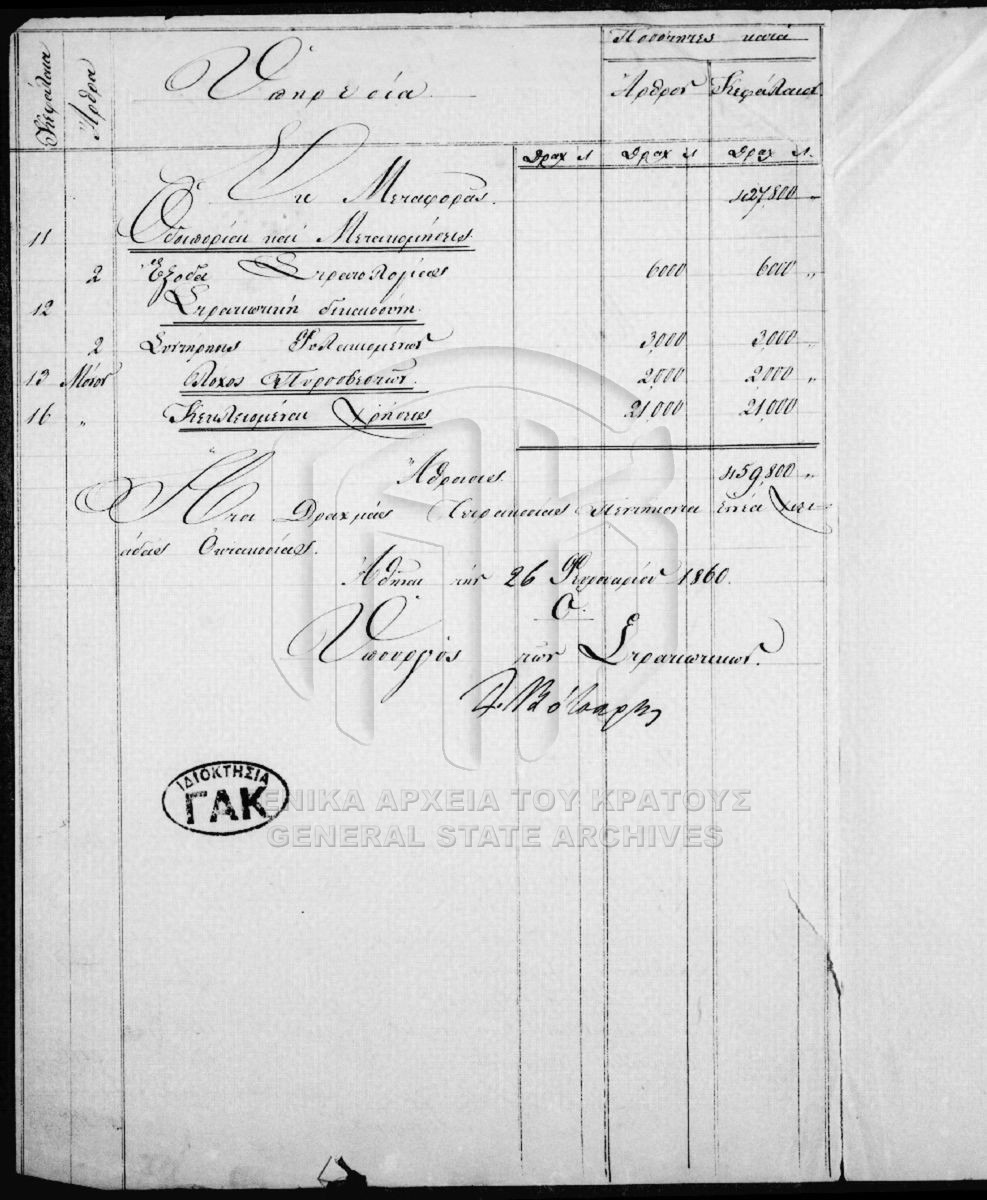 Ποσότητες κατά
Κεφάλαια Άρθρα Ὑπηρεσία Ἄρθρον Κεφάλαιον
Δραχ λ Δραχ λ Δραχ λ.
Ἐκ Μεταφορᾶς. 427,800 "
11 Ὁδοιπορίαι καί Μετακομήσεις
2 Ἔξοδα Στρατολογίας 6000 6000 "
12 Στρατιωτική δικαιοσύνη
2 Συντήρησις Φυλακισμένων 3,000 3,000 "
13 Μόνον Λόχος Πυροσβεστῶν. 2,000 2,000 "
16 " Κεκλεισμέναι Χρήσεις 21,000 21,000
Ἄθροισις 459,800 "
Ἤτοι Δραχμάς Τετρακοσίας πεντήκοντα ἐννέα Χιλι-
άδας Ὀκτακοσίας.
Ἀθῆναι τήν 26 Φεβρουαρίου 1860.
Ὁ
Ὑπουργός τῶν Στρατιωτικῶν.
Δ. Βότσαρης
ΙΔΙΟΚΤΗΣΙΑ
ΓΑΚ
ΓΕΝΙΚΑ ΑΡΧΕΙΑ ΤΟΥ ΚΡΑΤΟΥΣ
GENERAL STATE ARCHIVES